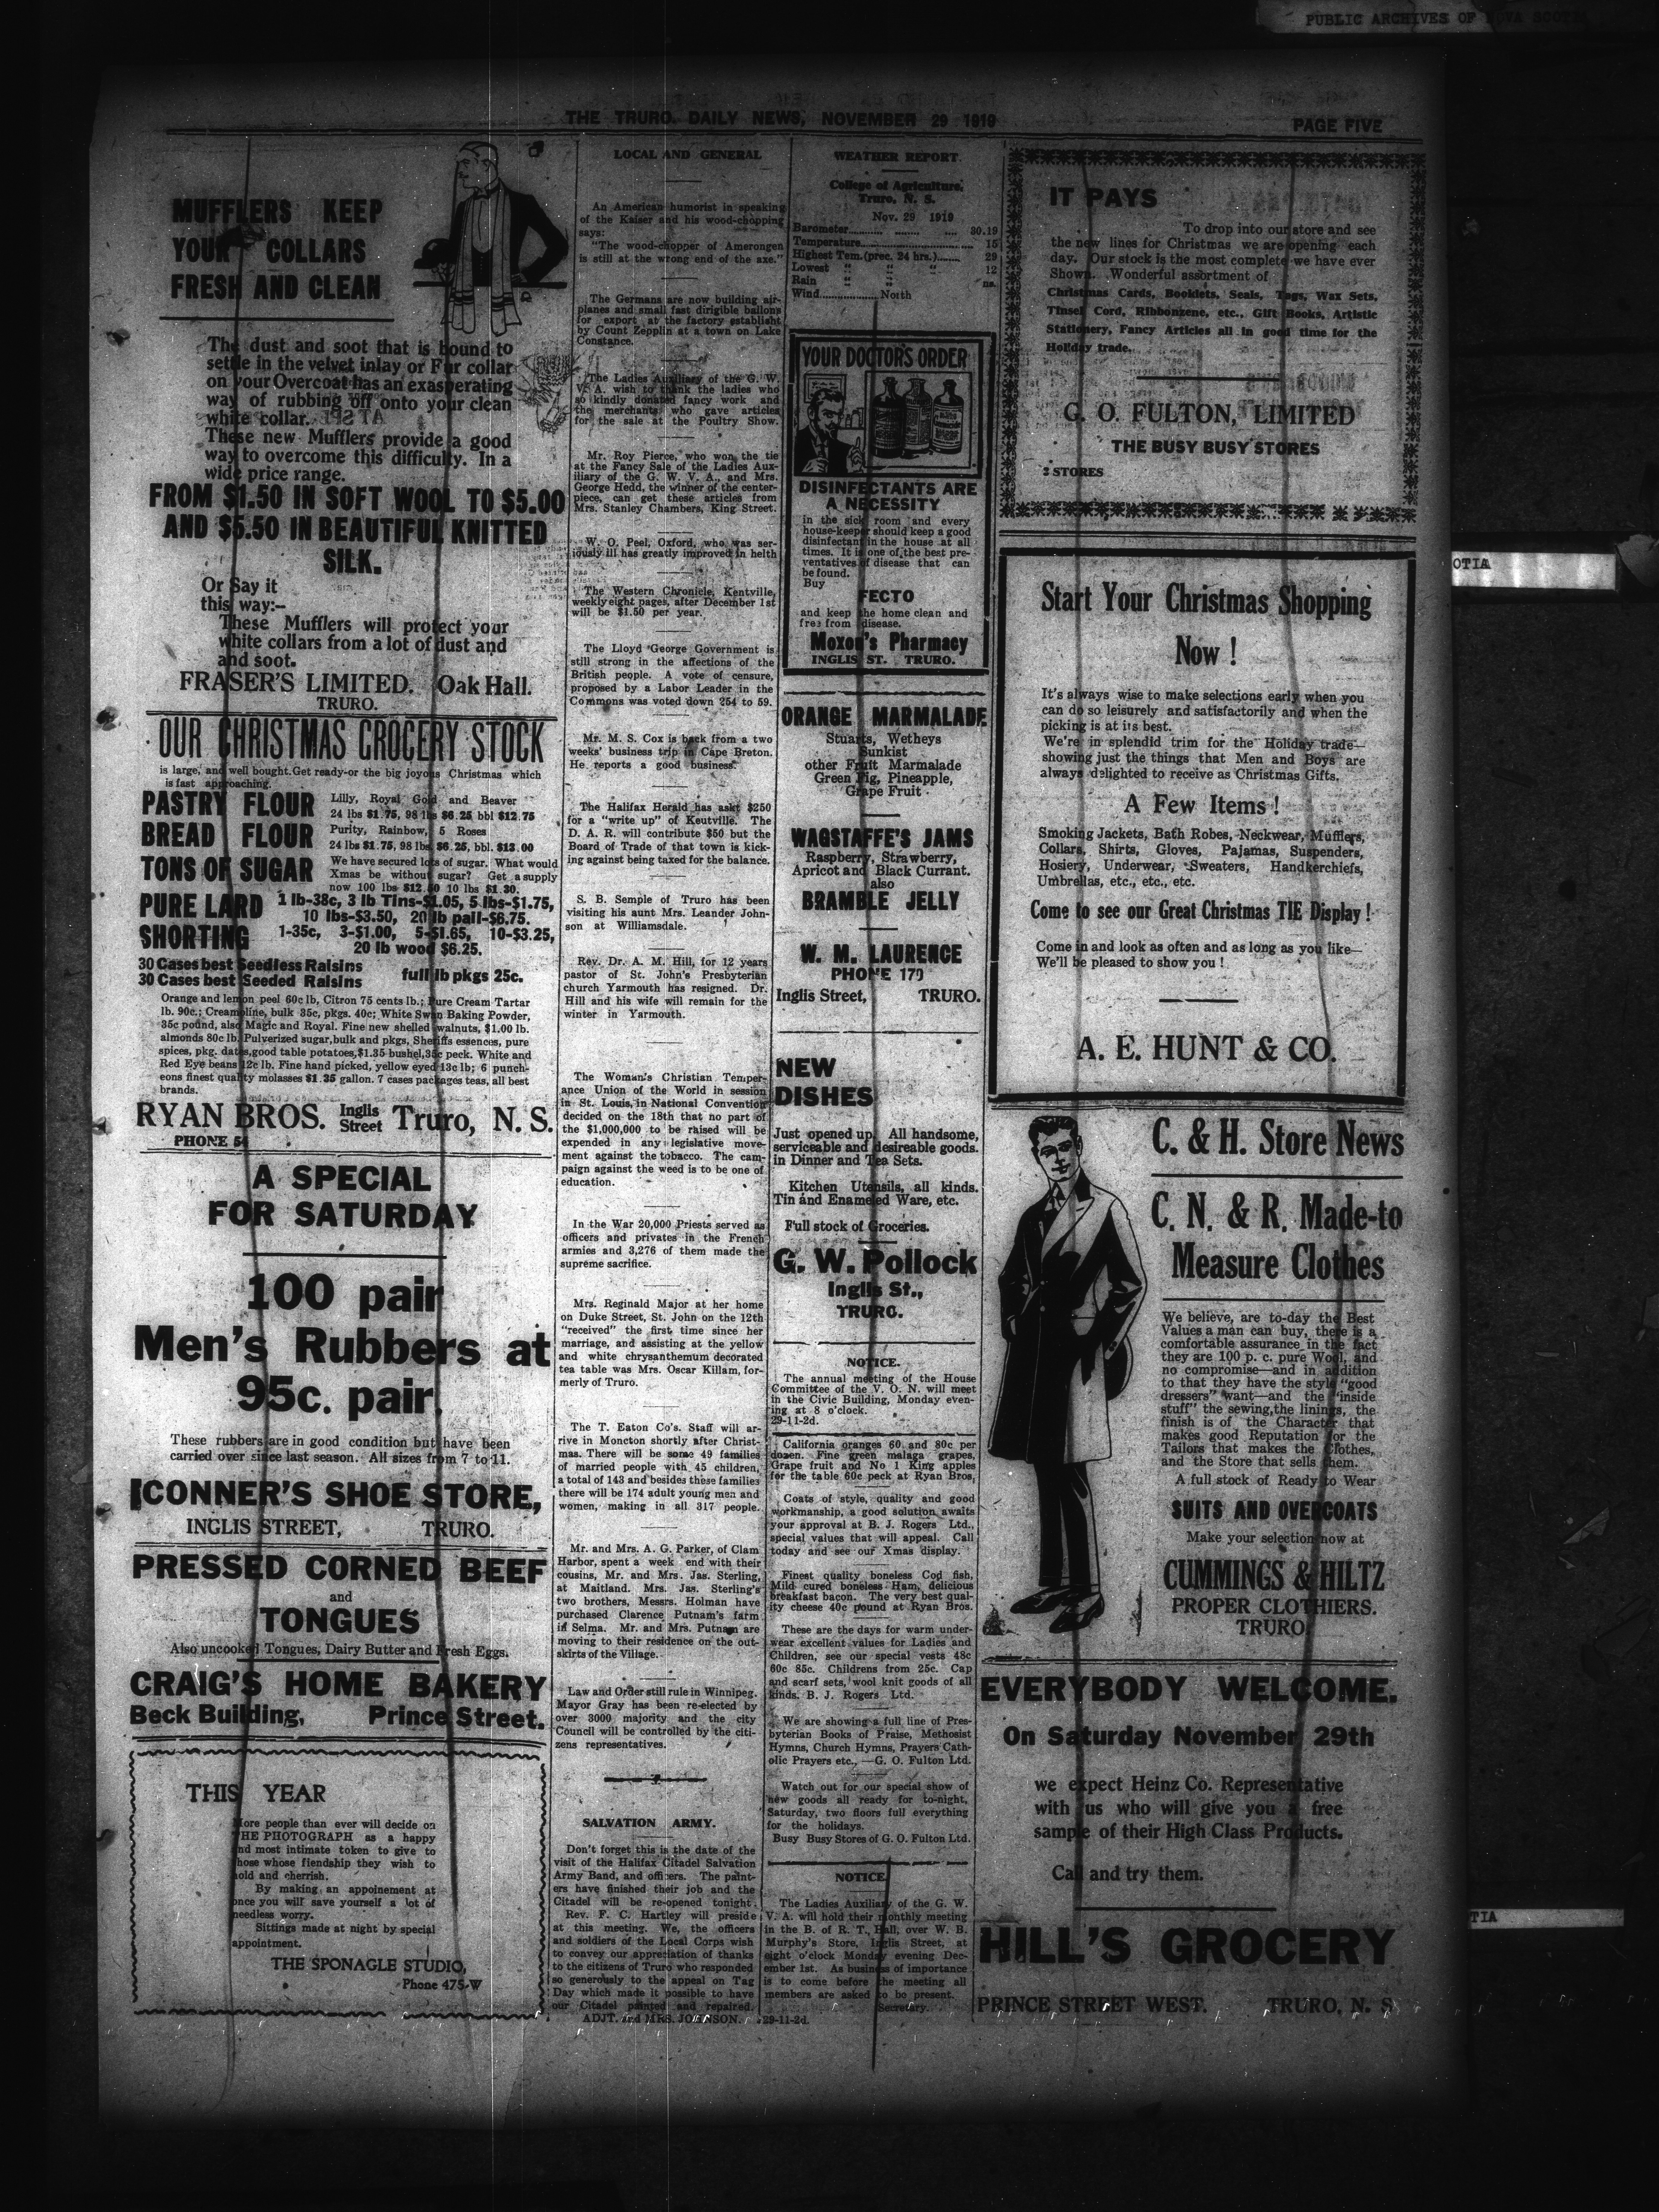 PUBLIC ARCHIVES OF NOVA SCOTIA
THE TRURO DAILY NEWS, NOVEMBER 29 1919
PAGE FIVE
MUFFLERS KEEP
YOUR COLLARS
FRESH AND CLEAN
The dust and soot that is bound to
settle in the velvet inlay or Fur collar
on your Overcoat has an exasperating
way of rubbing off onto your clean
white collar.
These new Mufflers provide a good
way to overcome this difficulty. In a
wide price range.
FROM $1.50 IN SOFT WOOL TO $5.00
AND $5.50 IN BEAUTIFUL KNITTED
SILK.
Or Say it
this way:-
These Mufflers will protect your
white collars from a lot of dust and
and soot.
FRASER'S LIMITED. Oak Hall.
TRURO.
OUR CHRISTMAS GROCERY STOCK
is large, and well bought. Get ready-or the big joyous Christmas which
is fast approaching.
PASTRY FLOUR Lilly, Royal Gold and Beaver
24 lbs $1.75, 98 lbs $6.25 bbl $12.75
BREAD FLOUR Purity, Rainbow, 5 Roses
24 lbs $1.75, 98 lbs $6.25, bbl. $13.00
TONS OF SUGAR We have secured lots of sugar. What would
Xmas be without sugar? Get a supply
now 100 lbs $12.50 10 lbs $1.30.
PURE LARD 1 lb-38c, 3 lb Tins-$1.05, 5 lbs-$1.75,
10 lbs-$3.50, 20 lb pail-$6.75.
SHORTING 1-35c, 3-$1.00, 5-$1.65, 10-$3.25,
20 lb wood $6.25.
30 Cases best Seedless Raisins
30 Cases best Seeded Raisins full lb pkgs 25c.
Orange and lemon peel 60c lb, Citron 75 cents lb.; Pure Cream Tartar
lb. 90c.; Creamoline, bulk 35c, pkgs. 40c; White Swan Baking Powder,
35c pound, also Magic and Royal. Fine new shelled walnuts, $1.00 lb.
almonds 80c lb. Pulverized sugar, bulk and pkgs, Sheriffs essences, pure
spices, pkg. dates, good table potatoes, $1.35 bushel, 35c peck. White and
Red Eye beans 12c lb. Fine hand picked, yellow eyed 13c lb; 6 punch-
eons finest quality molasses $1.35 gallon. 7 cases packages teas, all best
brands.
RYAN BROS. Inglis Street Truro, N. S.
PHONE 54
A SPECIAL
FOR SATURDAY
100 pair
Men's Rubbers at
95c. pair.
These rubbers are in good condition but have been
carried over since last season. All sizes from 7 to 11.
CONNER'S SHOE STORE,
INGLIS STREET, TRURO.
PRESSED CORNED BEEF
and
TONGUES
Also uncooked Tongues, Dairy Butter and Fresh Eggs.
CRAIG'S HOME BAKERY
Beck Building, Prince Street.
THIS YEAR
More people than ever will decide on
THE PHOTOGRAPH as a happy
and most intimate token to give to
those whose fiendship they wish to
hold and cherish.
By making an appoinement at
once you will save yourself a lot of
needless worry.
Sittings made at night by special
appointment.
THE SPONAGLE STUDIO,
Phone 475-W
LOCAL AND GENERAL
An American humorist in speaking
of the Kaiser and his wood-chopping
says:
"The wood-chopper of Amerongen
is still at the wrong end of the axe."
The Germans are now building air-
planes and small fast dirigible ballons
for export at the factory establisht
by Count Zepplin at a town on Lake
Constance.
The Ladies Auxiliary of the G. W.
V. A. wish to thank the ladies who
so kindly donated fancy work and
the merchants who gave articles
for the sale at the Poultry Show.
Mr. Roy Pierce, who won the tie
at the Fancy Sale of the Ladies Aux-
iliary of the G. W. V. A., and Mrs.
George Hedd, the winner of the center-
piece, can get these articles from
Mrs. Stanley Chambers, King Street.
W. O. Peel, Oxford, who was ser-
iously ill has greatly improved in helth
The Western Chronicle, Kentville,
weekly eight pages, after December 1st
will be $1.50 per year.
The Lloyd George Government is
still strong in the affections of the
British people. A vote of censure,
proposed by a Labor Leader in the
Commons was voted down 254 to 59.
Mr. M. S. Cox is back from a two
weeks' business trip in Cape Breton.
He reports a good business.
The Halifax Herald has askt $250
for a "write up" of Keutville. The
D. A. R. will contribute $50 but the
Board of Trade of that town is kick-
ing against being taxed for the balance.
S. B. Semple of Truro has been
visiting his aunt Mrs. Leander John-
son at Williamsdale.
Rev. Dr. A. M. Hill, for 12 years
pastor of St. John's Presbyterian
church Yarmouth has resigned. Dr.
Hill and his wife will remain for the
winter in Yarmouth.
The Woman's Christian Temper-
ance Union of the World in session
in St. Louis, in National Convention
decided on the 18th that no part of
the $1,000,000 to be raised will be
expended in any legislative move-
ment against the tobacco. The cam-
paign against the weed is to be one of
education.
In the War 20,000 Priests served as
officers and privates in the French
armies and 3,276 of them made the
supreme sacrifice.
Mrs. Reginald Major at her home
on Duke Street, St. John on the 12th
"received" the first time since her
marriage, and assisting at the yellow
and white chrysanthemum decorated
tea table was Mrs. Oscar Killam, for-
merly of Truro.
The T. Eaton Co's. Staff will ar-
rive in Moncton shortly after Christ-
mas. There will be some 49 families
of married people with 45 children,
a total of 143 and besides these families
there will be 174 adult young men and
women, making in all 317 people.
Mr. and Mrs. A. G. Parker, of Clam
Harbor, spent a week end with their
cousins, Mr. and Mrs. Jas. Sterling,
at Maitland. Mrs. Jas. Sterling's
two brothers, Messrs. Holman have
purchased Clarence Putnam's farm
in Selma. Mr. and Mrs. Putnam are
moving to their residence on the out-
skirts of the Village.
Law and Order still rule in Winnipeg.
Mayor Gray has been re-elected by
over 3000 majority and the city
Council will be controlled by the citi-
zens representatives.
SALVATION ARMY.
Don't forget this is the date of the
visit of the Halifax Citadel Salvation
Army Band, and officers. The paint-
ers have finished their job and the
Citadel will be re-opened tonight.
Rev. F. C. Hartley will preside
at this meeting. We, the officers
and soldiers of the Local Corps wish
to convey our appreciation of thanks
to the citizens of Truro who responded
so generously to the appeal on Tag
Day which made it possible to have
our Citadel painted and repaired.
ADJT. and MRS. JOHNSON.
WEATHER REPORT.
College of Agriculture,
Truro, N. S.
Nov. 29 1919
Barometer 30.19
Temperature 15
Highest Tem. (prec. 24 hrs.) 29
Lowest " " " 12
Rain " " ns.
Wind North
YOUR DOCTOR'S ORDER
DISINFECTANTS ARE
A NECESSITY
in the sick room and every
house-keeper should keep a good
disinfectant in the house at all
times. It is one of the best pre-
ventatives of disease that can
be found.
Buy
FECTO
and keep the home clean and
free from disease.
Moxon's Pharmacy
INGLIS ST. TRURO.
ORANGE MARMALADE
Stuarts, Wetheys
Sunkist
other Fruit Marmalade
Green Fig, Pineapple,
Grape Fruit
WAGSTAFFE'S JAMS
Raspberry, Strawberry,
Apricot and Black Currant.
also
BRAMBLE JELLY
W. M. LAURENCE
PHONE 170
Inglis Street, TRURO.
NEW
DISHES
Just opened up. All handsome,
serviceable and desireable goods.
in Dinner and Tea Sets.
Kitchen Utensils, all kinds.
Tin and Enameled Ware, etc.
Full stock of Groceries.
G. W. Pollock
Inglis St.,
TRURO.
NOTICE.
The annual meeting of the House
Committee of the V. O. N. will meet
in the Civic Building, Monday even-
ing at 8 o'clock.
29-11-2d.
California oranges 60 and 80c per
dozen. Fine green malaga grapes,
Grape fruit and No 1 King apples
for the table 60c peck at Ryan Bros,
Coats of style, quality and good
workmanship, a good solution awaits
your approval at B. J. Rogers Ltd.,
special values that will appeal. Call
today and see our Xmas display.
Finest quality boneless Cod fish,
Mild cured boneless Ham, delicious
breakfast bacon. The very best qual-
ity cheese 40c pound at Ryan Bros.
These are the days for warm under-
wear excellent values for Ladies and
Children, see our special vests 48c
60c 85c. Childrens from 25c. Cap
and scarf sets, wool knit goods of all
kinds. B. J. Rogers Ltd.
We are showing a full line of Pres-
byterian Books of Praise, Methosist
Hymns, Church Hymns, Prayers Cath-
olic Prayers etc., —G. O. Fulton Ltd.
Watch out for our special show of
new goods all ready for to-night,
Saturday, two floors full everything
for the holidays.
Busy Busy Stores of G. O. Fulton Ltd.
NOTICE
The Ladies Auxiliary of the G. W.
V. A. will hold their monthly meeting
in the B. of R. T., Hall, over W. B.
Murphy's Store, Inglis Street, at
eight o'clock Monday evening Dec-
ember 1st. As business of importance
is to come before the meeting all
members are asked to be present.
Secretary.
29-11-2d.
IT PAYS
To drop into our store and see
the new lines for Christmas we are opening each
day. Our stock is the most complete we have ever
Shown. Wonderful assortment of
Christmas Cards, Booklets, Seals, Tags, Wax Sets,
Tinsel Cord, Ribbonzene, etc., Gift Books, Artistic
Stationery, Fancy Articles all in good time for the
Holiday trade.
G. O. FULTON, LIMITED
THE BUSY BUSY STORES
2 STORES
Start Your Christmas Shopping
Now !
It's always wise to make selections early when you
can do so leisurely and satisfactorily and when the
picking is at its best.
We're in splendid trim for the Holiday trade—
showing just the things that Men and Boys are
always delighted to receive as Christmas Gifts.
A Few Items !
Smoking Jackets, Bath Robes, Neckwear, Mufflers,
Collars, Shirts, Gloves, Pajamas, Suspenders,
Hosiery, Underwear, Sweaters, Handkerchiefs,
Umbrellas, etc., etc., etc.
Come to see our Great Christmas TIE Display !
Come in and look as often and as long as you like—
We'll be pleased to show you !
A. E. HUNT & CO.
C. & H. Store News
C. N. & R. Made-to
Measure Clothes
We believe, are to-day the Best
Values a man can buy, there is a
comfortable assurance in the fact
they are 100 p. c. pure Wool, and
no compromise—and in addition
to that they have the style "good
dressers" want—and the "inside
stuff" the sewing, the linings, the
finish is of the Character that
makes good Reputation for the
Tailors that makes the Clothes,
and the Store that sells them.
A full stock of Ready to Wear
SUITS AND OVERCOATS
Make your selection now at
CUMMINGS & HILTZ
PROPER CLOTHIERS.
TRURO.
EVERYBODY WELCOME.
On Saturday November 29th
we expect Heinz Co. Representative
with us who will give you a free
sample of their High Class Products.
Call and try them.
HILL'S GROCERY
PRINCE STREET WEST. TRURO, N. S
OTIA
TIA